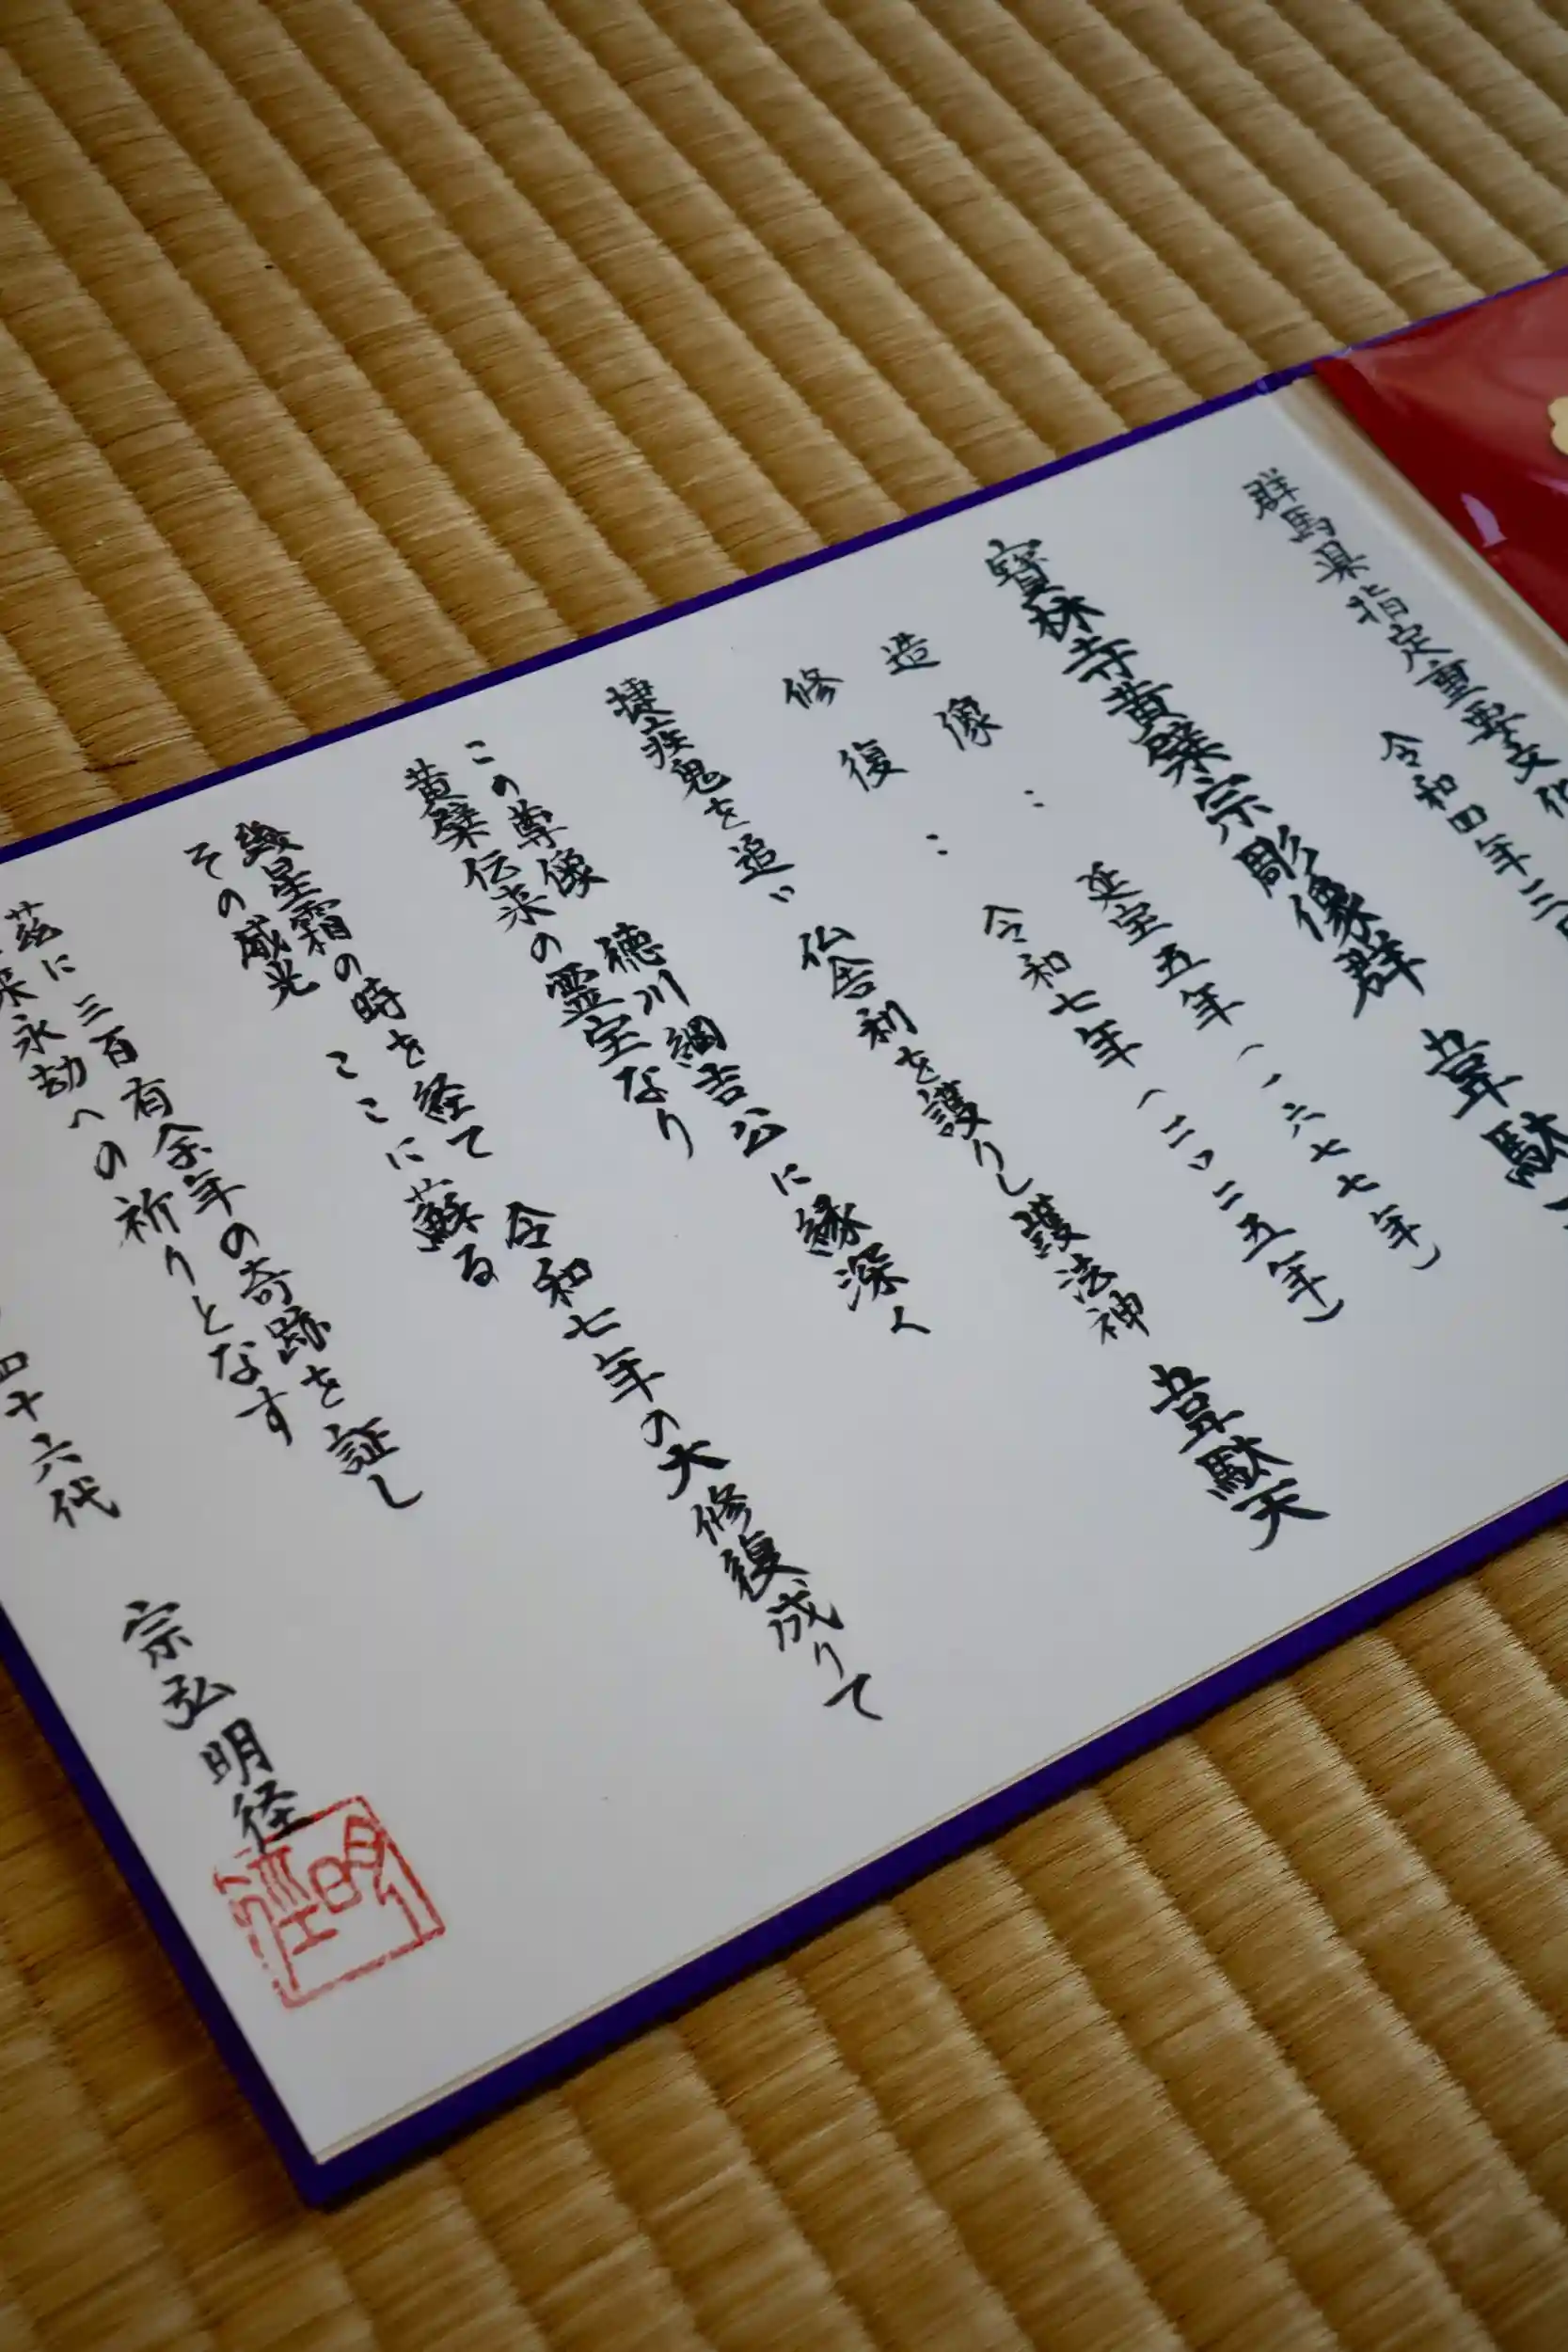 群馬県指定重要文化
令和四年三月
寶林寺黄檗宗彫像群 韋駄
造像： 延宝五年（一六七七年）
修復： 令和七年（二〇二五年）
捷疾鬼を追い 仏舎利を護りし護法神 韋駄天
この尊像 徳川綱吉公に縁深く
黄檗伝来の霊宝なり
幾星霜の時を経て 令和七年の大修復成りて
その威光 ここに蘇る
茲に三百有余年の奇跡を証し
来永劫への祈りとなす
四十六代 宗弘明径